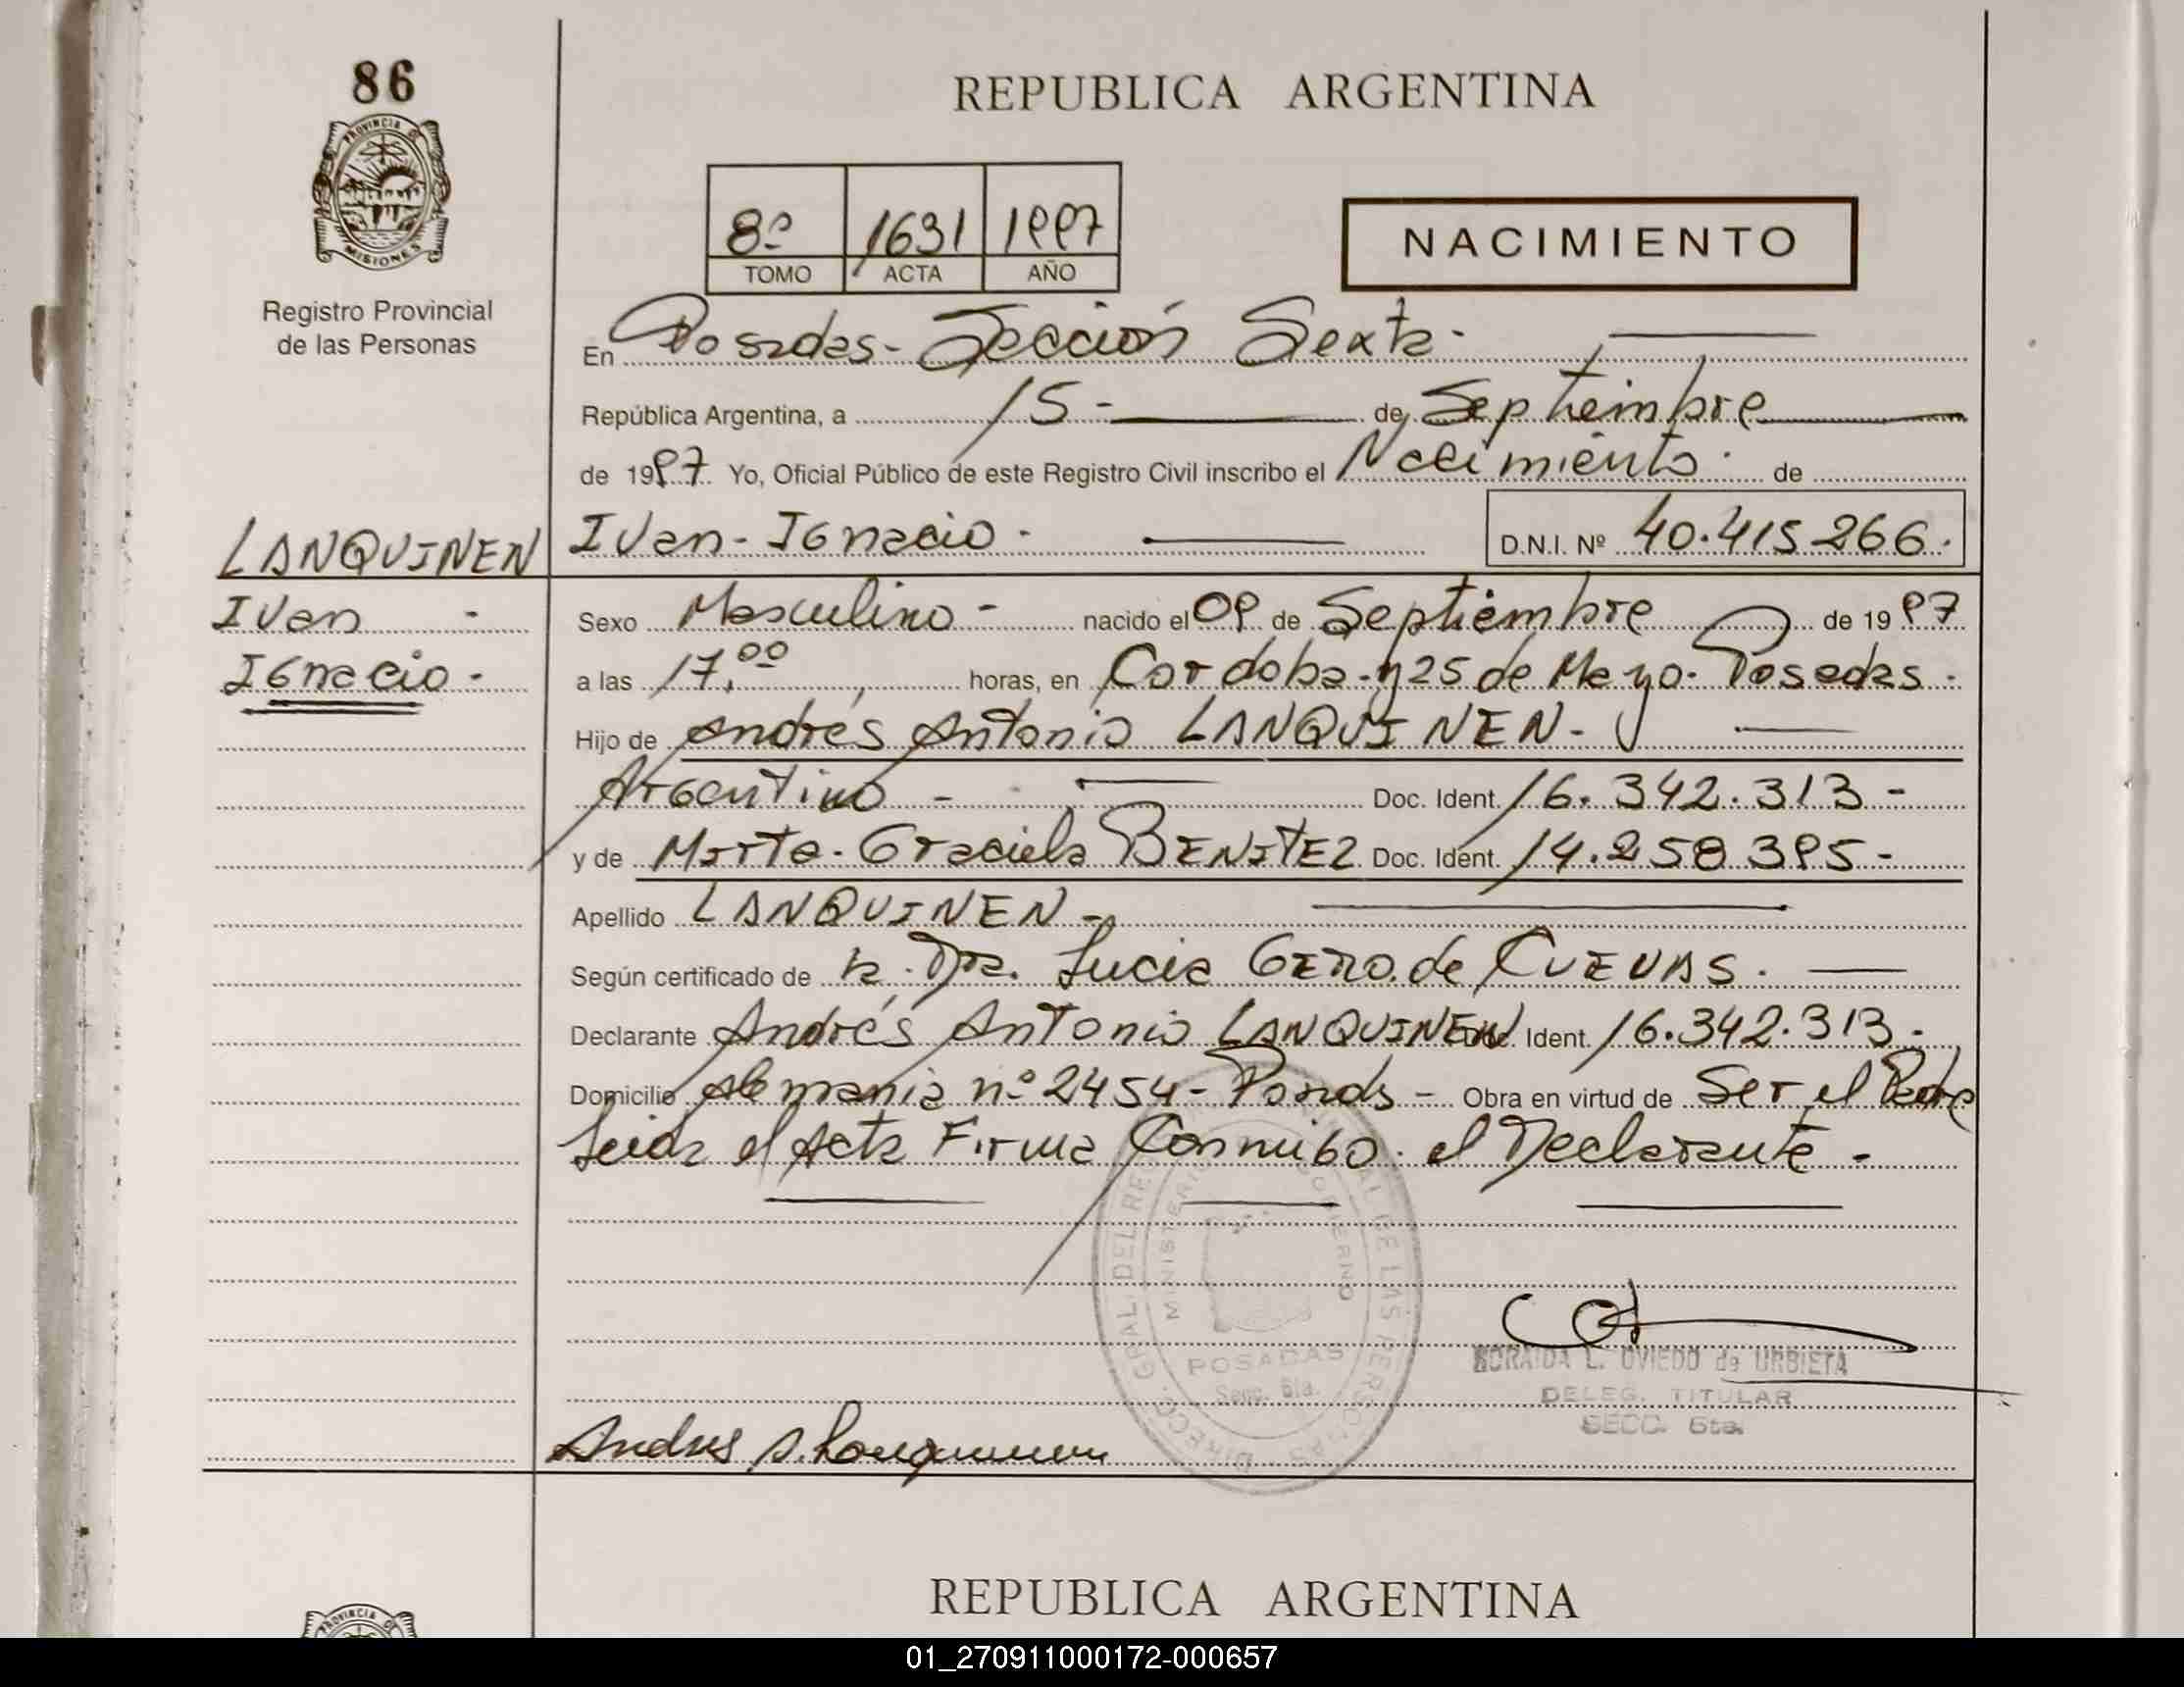 86
REPUBLICA ARGENTINA
PROVINCIA DE
MISIONES
Registro Provincial
de las Personas
8º 1631 1997
TOMO ACTA AÑO
NACIMIENTO
En Posadas - Sección Sexta -
República Argentina, a 15 - de Septiembre
de 1997 Yo, Oficial Público de este Registro Civil inscribo el Nacimiento - de
LANQUINEN Ivan - Ignacio - D.N.I. Nº 40.415.266.
Ivan - Sexo Masculino - nacido el 09 de Septiembre de 1997
Ignacio - a las 17,00 horas, en Cordoba - y 25 de Mayo - Posadas -
Hijo de Andrés Antonio LANQUINEN -
Argentino - Doc. Ident. 16.342.313 -
y de Mirta - Graciela BENITEZ Doc. Ident. 14.258.395 -
Apellido LANQUINEN -
Según certificado de la Dra. Lucia de CUEVAS.
Declarante Andrés Antonio LANQUINEN Ident. 16.342.313 -
Domicilio Alemania nº 2454 - - Obra en virtud de Ser el Padre
Leida el Acta Firma Conmigo el Declarante -
DIRECC. GRAL. DEL DE LAS PERSONAS
MINISTERIO GOBIERNO
POSADAS
Secc. 6ta.
SORAIDA L. OVIEDO de URBIETA
DELEG. TITULAR
SECC. 6ta.
Andres A. Lanquinen
REPUBLICA ARGENTINA
PROVINCIA
01_270911000172-000657